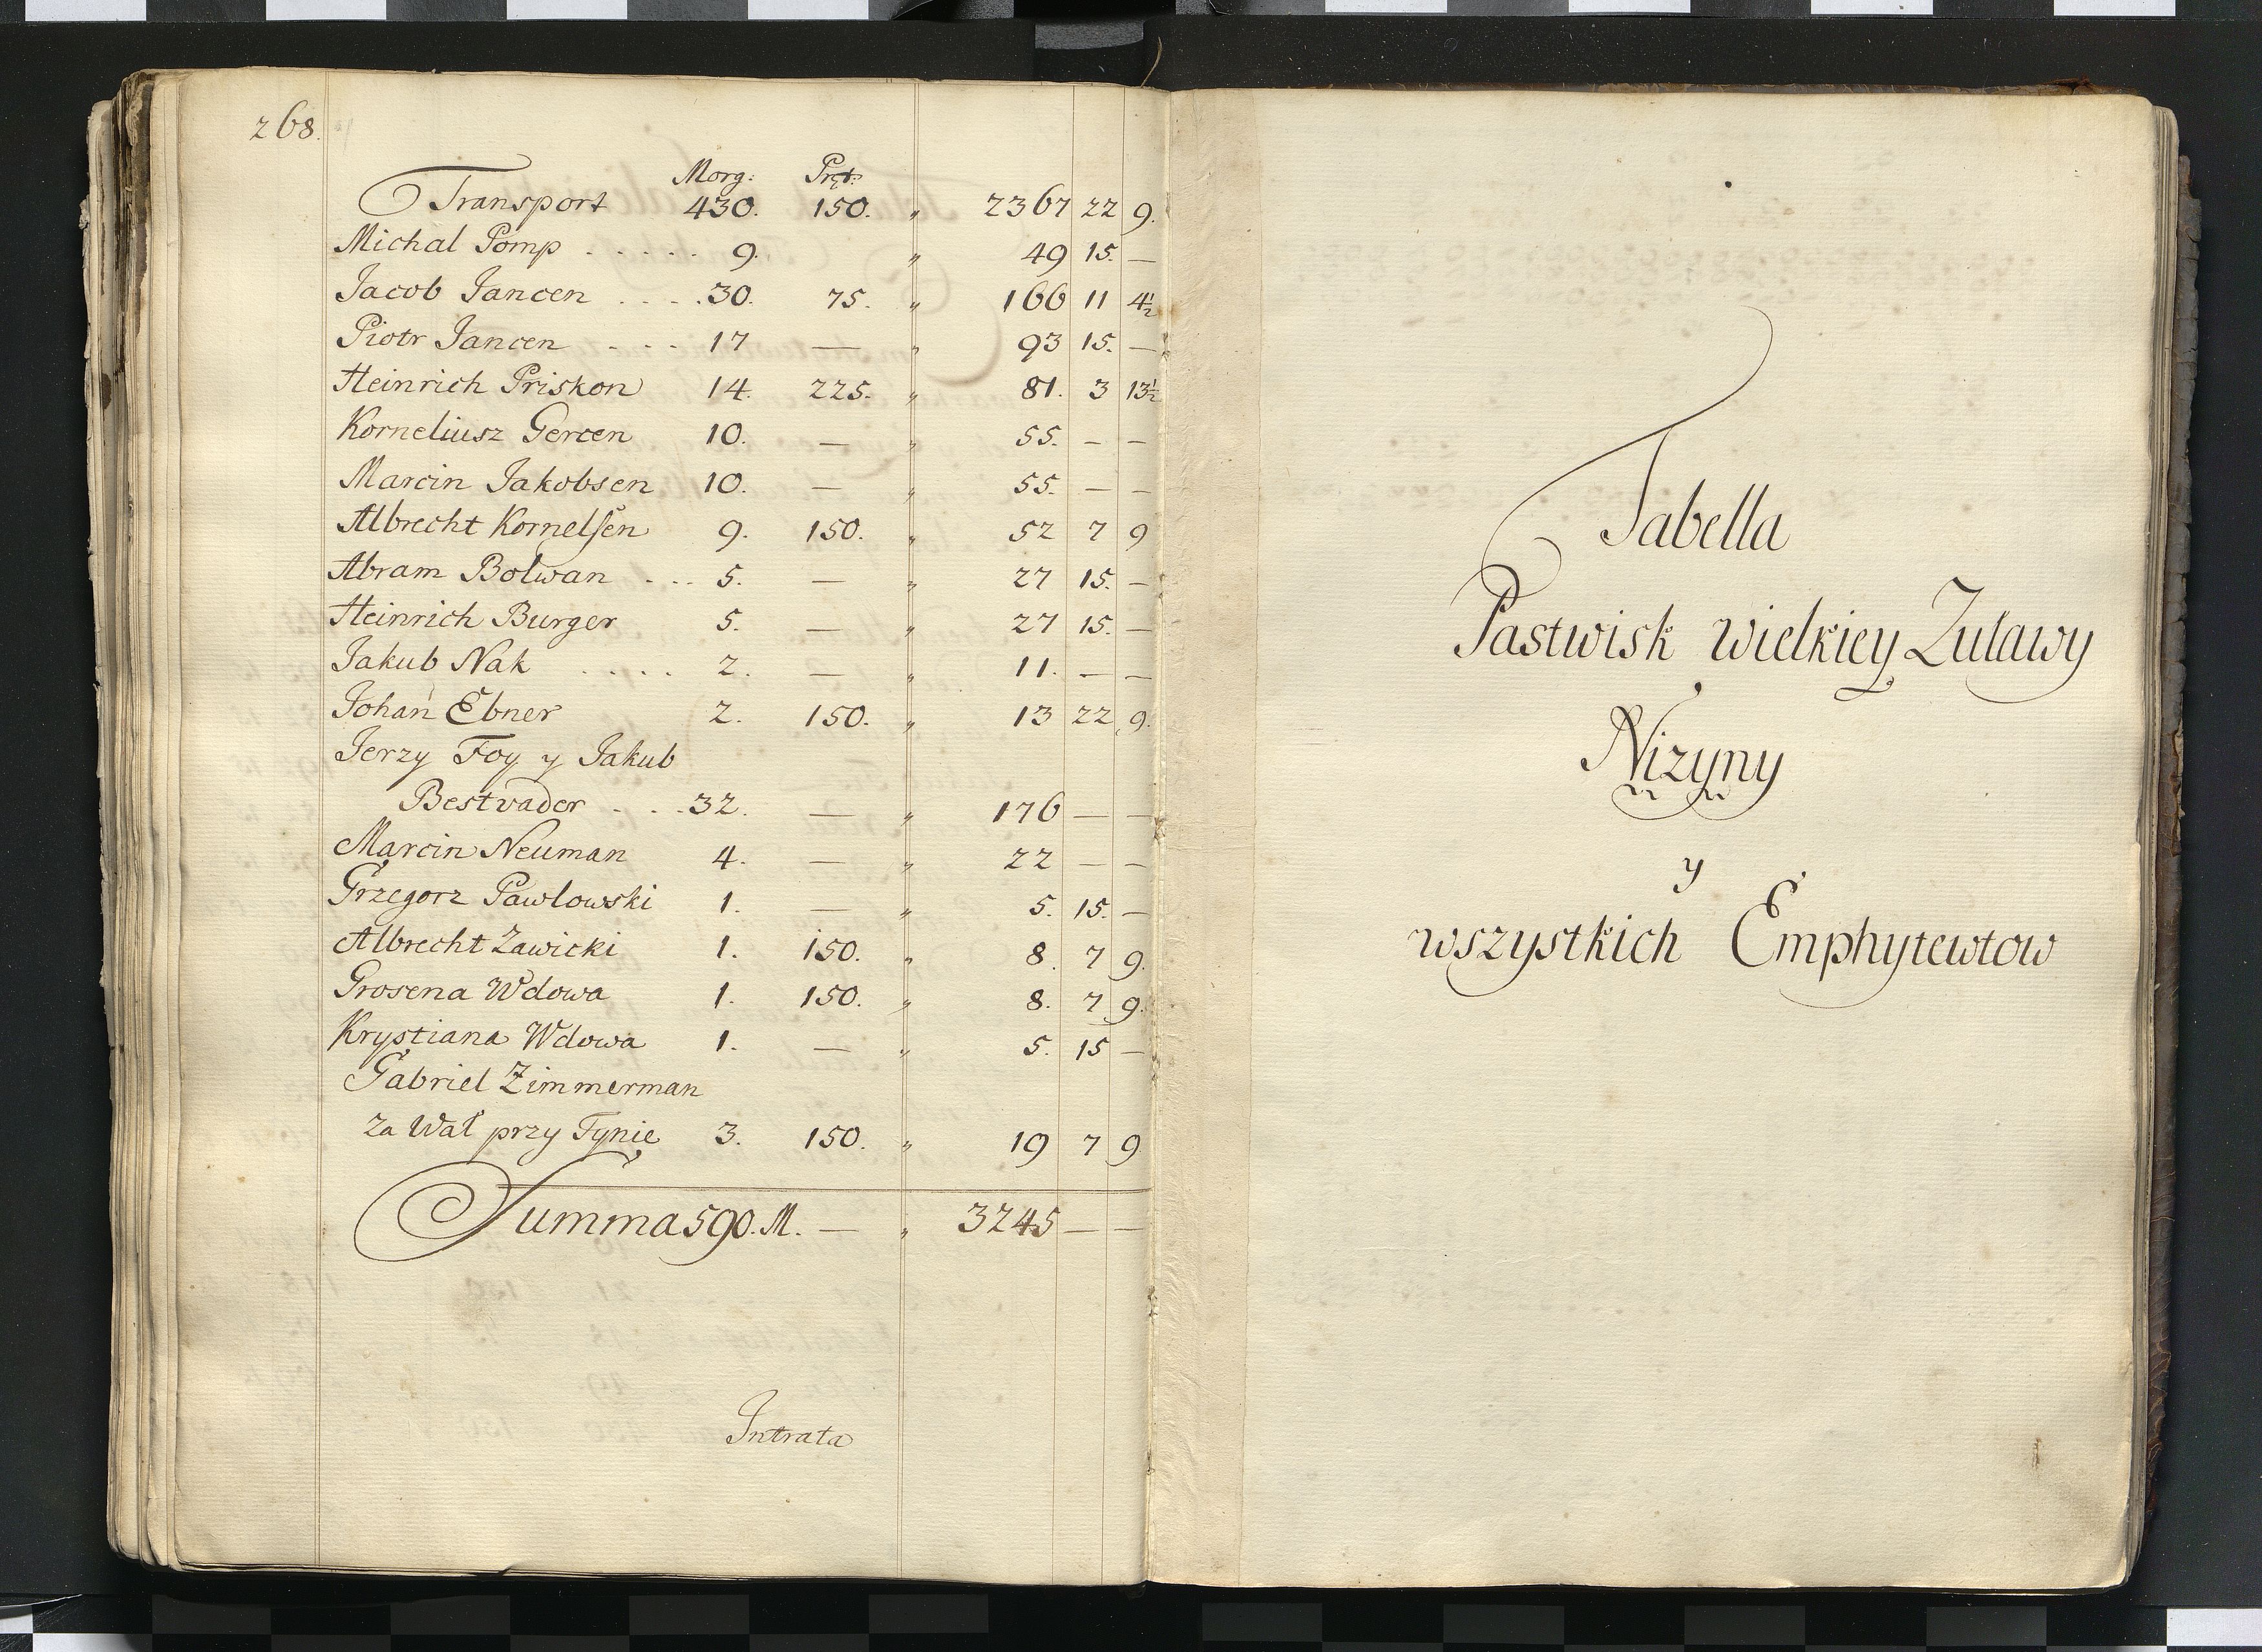 268.
Morg: Pręt:
Transport 430. 150. " 2367 22 9.
Michal Pomp . . . . . 9. " 49 15. —
Jacob Jancen . . . . 30. 75. " 166 11 4½
Piotr Jancen . . . 17 — " 93 15. —
Heinrich Priskon 14. 225. " 81. 3 13½
Korneliusz Gercen 10. — " 55. — —
Marcin Jakobsen 10. — " 55. — —
Albrecht Kornelsen 9. 150. " 52 7 9
Abram Bolwan . . . 5. — " 27 15. —
Heinrich Burger 5. — " 27 15. —
Jakub Nak . . . . 2. — " 11. — —
Johan Ebner 2. 150. " 13 22 9.
Jerzy Foy y Jakub
Bestvader . . . 32. — " 176 — —
Marcin Neuman 4. — " 22 — —
Grzegorz Pawlowski 1. — " 5. 15. —
Albrecht Zawicki 1. 150. " 8. 7 9.
Grosena Wdowa 1. 150. " 8. 7 9.
Krystiana Wdowa 1. — " 5. 15 —
Gabriel Zimmerman
za Wał przy Tynie 3. 150. " 19 7 9
Summa 590. M. — " 3245 — —
Intrata
Tabella
Pastwisk wielkiey Zuławy
Nizyny
y
wszystkich Emphytewtow